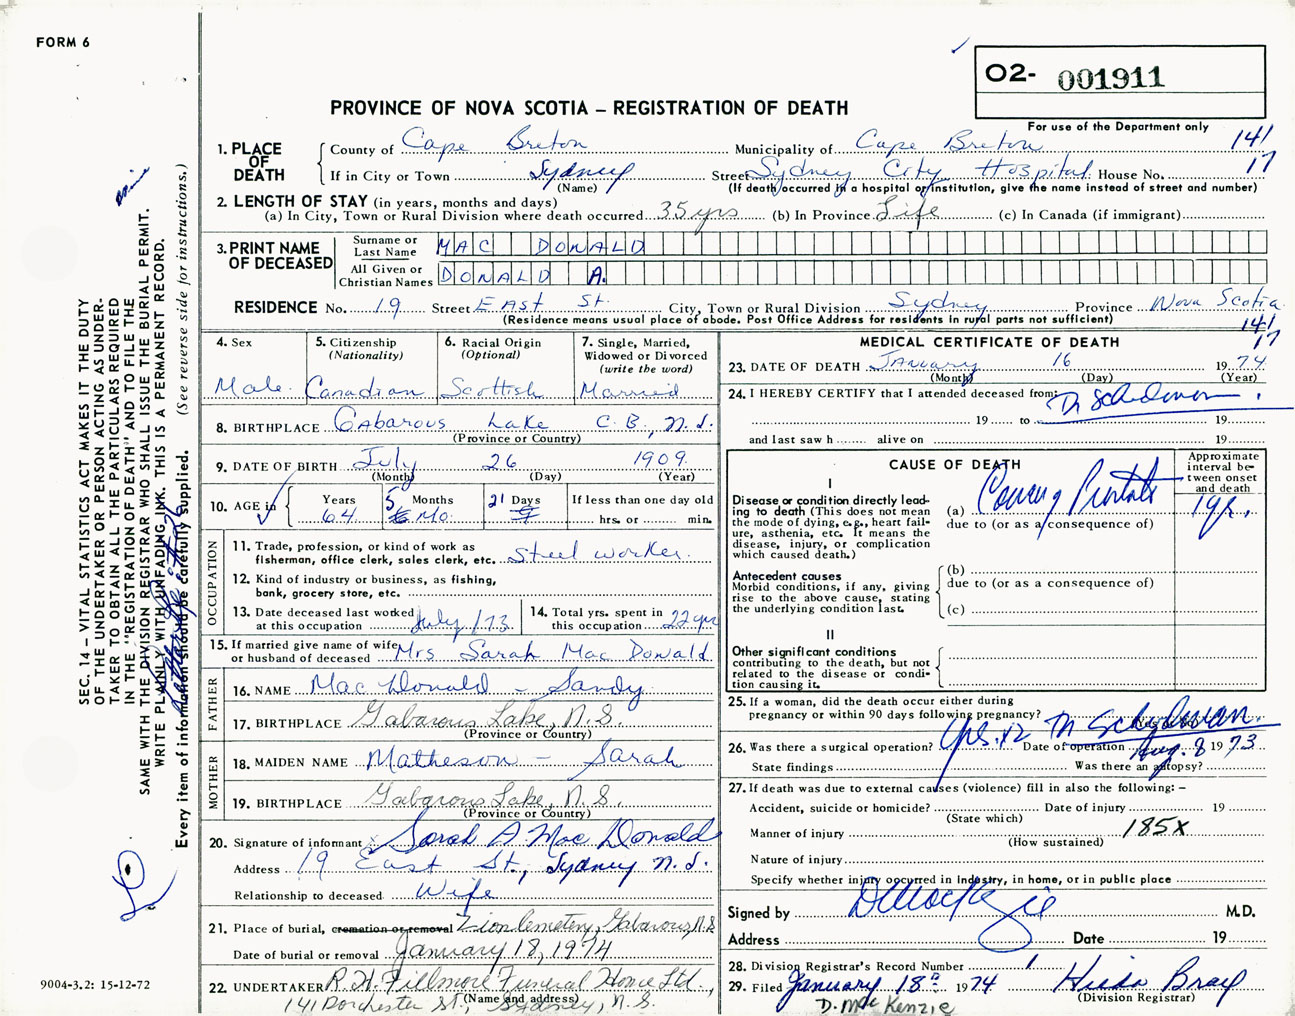 FORM 6
O2- 001911
PROVINCE OF NOVA SCOTIA – REGISTRATION OF DEATH
For use of the Department only
1. PLACE OF DEATH { County of Cape Breton Municipality of Cape Breton 141
If in City or Town Sydney Street Sydney City Hospital House No. 17
(Name) (If death occurred in a hospital or institution, give the name instead of street and number)
2. LENGTH OF STAY (in years, months and days)
(a) In City, Town or Rural Division where death occurred 35 yrs (b) In Province Life (c) In Canada (if immigrant)
3. PRINT NAME OF DECEASED
Surname or Last Name MAC DONALD
All Given or Christian Names DONALD A.
RESIDENCE No. 19 Street East St. City, Town or Rural Division Sydney Province Nova Scotia
(Residence means usual place of abode. Post Office Address for residents in rural parts not sufficient) 141
17
4. Sex Male
5. Citizenship (Nationality) Canadian
6. Racial Origin (Optional) Scottish
7. Single, Married, Widowed or Divorced (write the word) Married
8. BIRTHPLACE Gabarous Lake C.B., N.S.
(Province or Country)
9. DATE OF BIRTH July 26 1909
(Month) (Day) (Year)
10. AGE in { Years 64 Months 5 Mo. Days 21 If less than one day old hrs. or min.
OCCUPATION
11. Trade, profession, or kind of work as fisherman, office clerk, sales clerk, etc. Steel worker.
12. Kind of industry or business, as fishing, bank, grocery store, etc.
13. Date deceased last worked at this occupation July /73
14. Total yrs. spent in this occupation 22 yrs
15. If married give name of wife or husband of deceased Mrs Sarah Mac Donald
FATHER
16. NAME Mac Donald - Sandy
17. BIRTHPLACE Gabarous Lake, N.S.
(Province or Country)
MOTHER
18. MAIDEN NAME Matheson - Sarah
19. BIRTHPLACE Gabarous Lake, N.S.
(Province or Country)
20. Signature of informant x Sarah A Mac Donald
Address 19 East St., Sydney N.S.
Relationship to deceased Wife
21. Place of burial, cremation or removal Zion Cemetery, Gabarous, N.S
Date of burial or removal January 18, 1974
22. UNDERTAKER R.H. Fillmore Funeral Home Ltd.,
(Name and address)
141 Dorchester St., Sydney, N.S.
MEDICAL CERTIFICATE OF DEATH
23. DATE OF DEATH January 16 1974
(Month) (Day) (Year)
24. I HEREBY CERTIFY that I attended deceased from:
19 to 19
and last saw h alive on 19
CAUSE OF DEATH
Approximate interval between onset and death
I
Disease or condition directly leading to death (This does not mean the mode of dying, e.g., heart failure, asthenia, etc. It means the disease, injury, or complication which caused death.)
(a)
due to (or as a consequence of)
Antecedent causes
Morbid conditions, if any, giving rise to the above cause, stating the underlying condition last.
(b)
due to (or as a consequence of)
(c)
II
Other significant conditions contributing to the death, but not related to the disease or condition causing it.
25. If a woman, did the death occur either during pregnancy or within 90 days following pregnancy?
26. Was there a surgical operation? Date of operation Aug. 8 1973
State findings Was there an autopsy?
27. If death was due to external causes (violence) fill in also the following: –
Accident, suicide or homicide? Date of injury 19
(State which)
Manner of injury 185X
(How sustained)
Nature of injury
Specify whether injury occurred in Industry, in home, or in public place
Signed by D MacKenzie M.D.
Address Date 19
28. Division Registrar's Record Number 1
29. Filed January 18th 1974 Hilda Bray
(Division Registrar)
D. MacKenzie
SEC. 14 – VITAL STATISTICS ACT MAKES IT THE DUTY
OF THE UNDERTAKER OR PERSON ACTING AS UNDER-
TAKER TO OBTAIN ALL THE PARTICULARS REQUIRED
IN THE "REGISTRATION OF DEATH" AND TO FILE THE
SAME WITH THE DIVISION REGISTRAR WHO SHALL ISSUE THE BURIAL PERMIT.
WRITE PLAINLY WITH UNFADING INK. THIS IS A PERMANENT RECORD.
Every item of information should be carefully supplied. (See reverse side for instructions.)
9004-3.2: 15-12-72